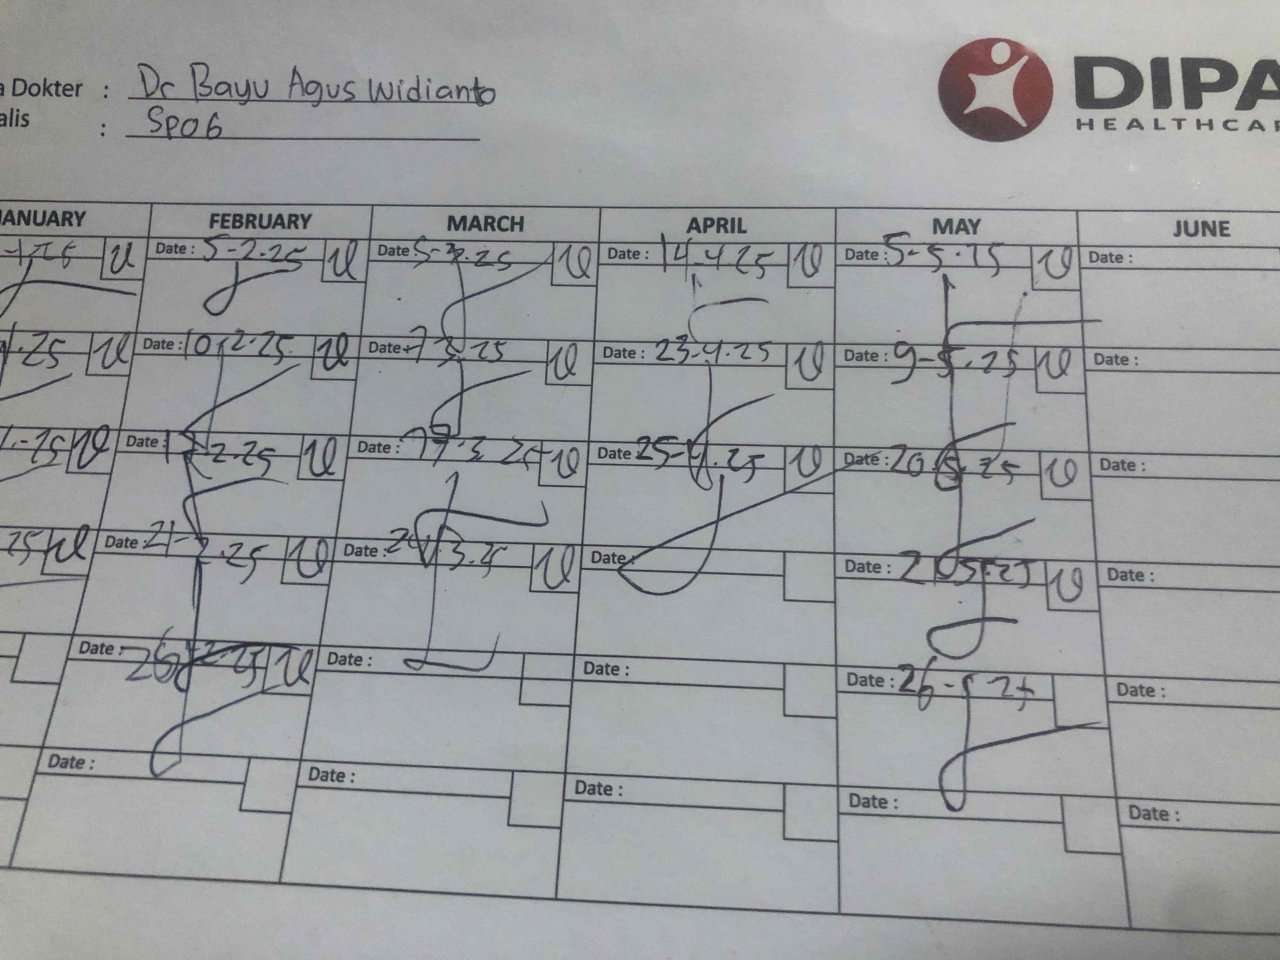 a Dokter : Dr Bayu Agus Widianto
alis : SPOG
DIPA
HEALTHCAR
JANUARY FEBRUARY MARCH APRIL MAY JUNE
Date : 5-2-25 Date 5-3-25 Date : 14-4-25 Date : 5-5-25 Date :
25 Date : 10-2-25 Date 7-3-25 Date : 23-4-25 Date : 9-5-25 Date :
25 Date 2-25 Date : 3 Date 25-4-25 Date : 20-5-25 Date :
25 Date : 21-2-25 Date : 3-25 Date Date : 5-25 Date :
Date : 26-2-25 Date : Date : Date : 26-5 Date :
Date : Date : Date : Date : Date :